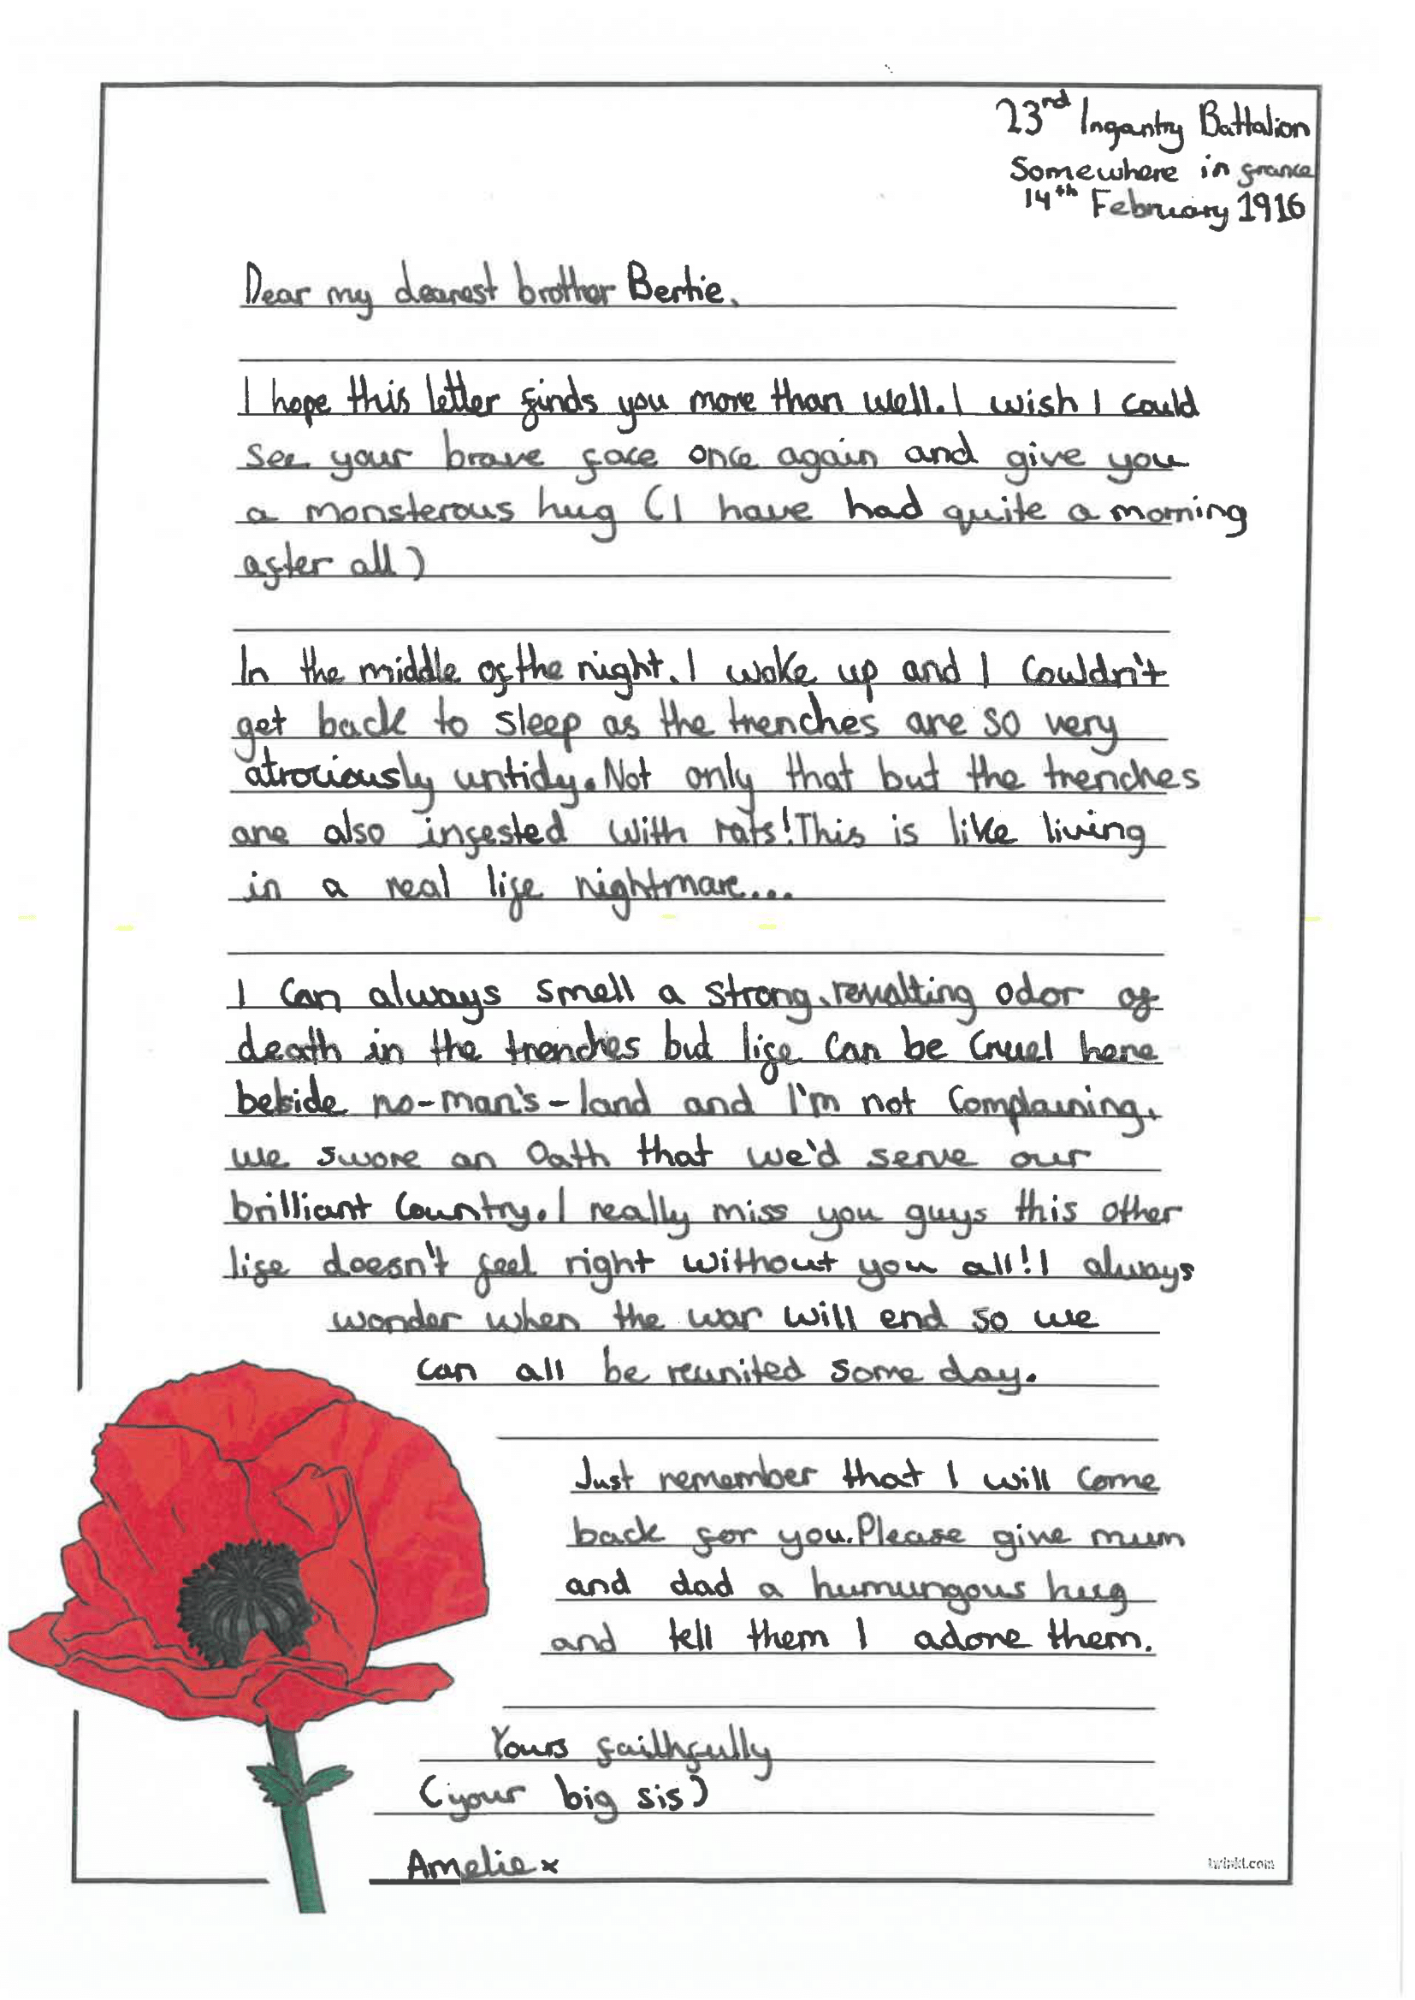 23rd Infantry Battalion
Somewhere in france
14th February 1916
Dear my dearest brother Bertie,
I hope this letter finds you more than well. I wish I could
see your brave face once again and give you
a monsterous hug (I have had quite a morning
after all)
In the middle of the night, I woke up and I couldn't
get back to sleep as the trenches are so very
atrociously untidy. Not only that but the trenches
are also infested with rats! This is like living
in a real life nightmare....
I can always smell a strong, revolting odor of
death in the trenches but life can be cruel here
beside no-man's-land and I'm not complaining,
we swore an Oath that we'd serve our
brilliant country. I really miss you guys this other
life doesn't feel right without you all! I always
wonder when the war will end so we
can all be reunited some day.
Just remember that I will come
back for you. Please give mum
and dad a humungous hug
and tell them I adore them.
Yours faithfully
(your big sis)
Amelie x
twinkl.com